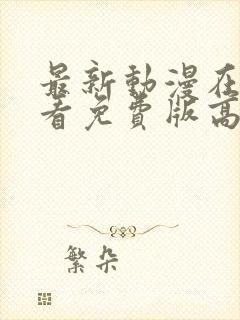 最新動漫在
看免費版高
繁朵